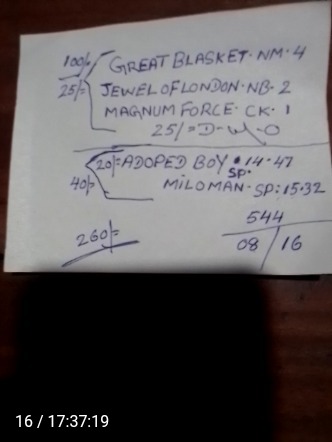 100/- GREAT BLASKET. NM. 4
25/= JEWEL OF LONDON. NB. 2
MAGNUM FORCE. CK. 1
25/=D-W-O
20/= ADOPED BOY SP. 14.47
40/= MILOMAN. SP:15.32
544
260/= 08/16
16 / 17:37:19